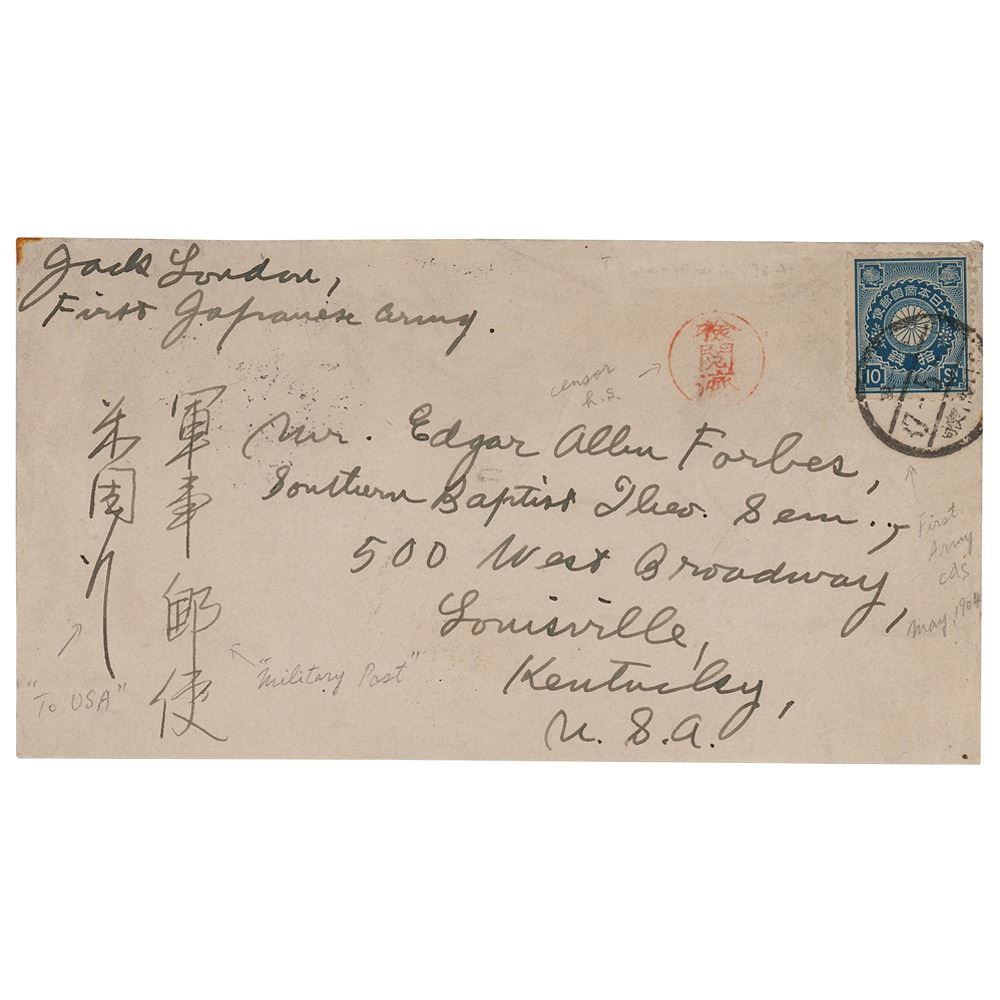 Jack London,
First Japanese Army.
大日本帝國郵便
拾錢
10 SN
檢閲濟
censor
h.s.
Mr. Edgar Allen Forbes,
Southern Baptist Theo. Sem.,
500 West Broadway,
Louisville,
Kentucky,
U. S. A.
軍事郵便
米国行
"To USA"
"Military Post"
First
Army
cds
May, 1904